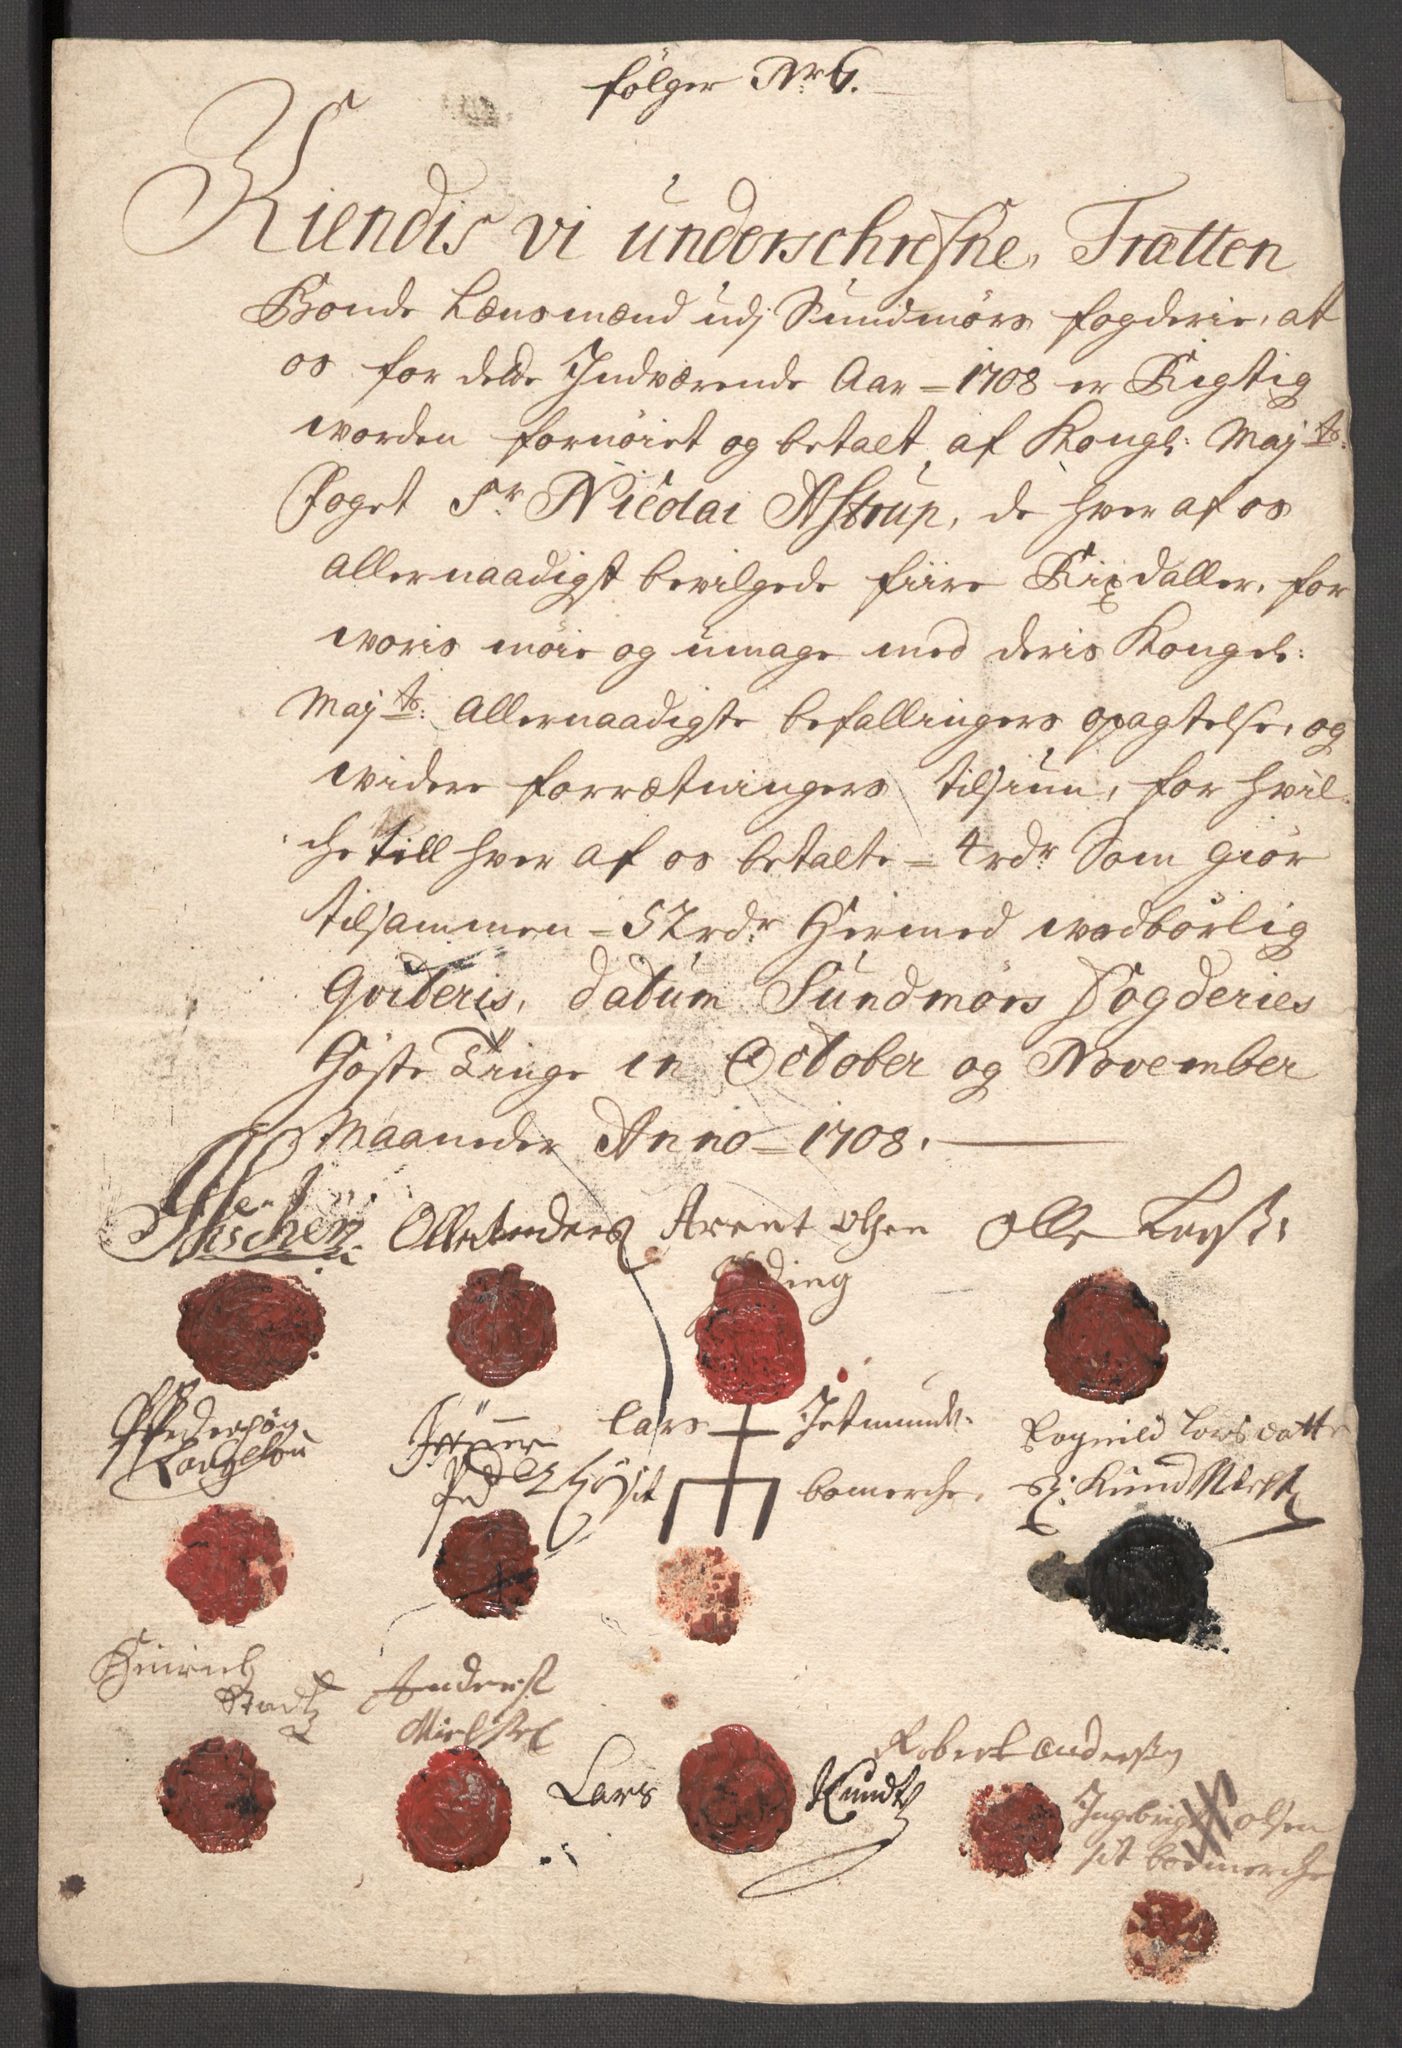 følger Nr 6.
Kiendis vi underschrefne, Trætten
Bonde Lænsmænd udj Sundmørs fogderie, at
os for dette Indværende Aar = 1708 er Rigtig
worden fornøiet og betalt af Kongl: Maj ts:
Foget Sr. Nicolai Astrup, de hver af os
allernaadigst bevilgede fiire Rixdaller, for
woris møie og umage med deris Kongl:
Maj ts: allernaadigste befallingers opagtelse, og
widere forrætningers tilsiun, for hvil-
che till hver af os betalte = 4 rdr Som giør
tilsammen = 52 rdr Hermed wedbørlig
Qviteris, datum Sundmørs Fogderies
Høste Tinge in October og November
Maaneder Anno = 1708.
Olle Anders Arent Olsen Olle Larss:
Pedersøn Lars Jetmunds: Ragnild Lars datter
Ped bomerche, Sl. Knud
Heinrich Anderss
Lars Knudtz Robert Anderssen
Ingebrigt Olsen
sit boemerche